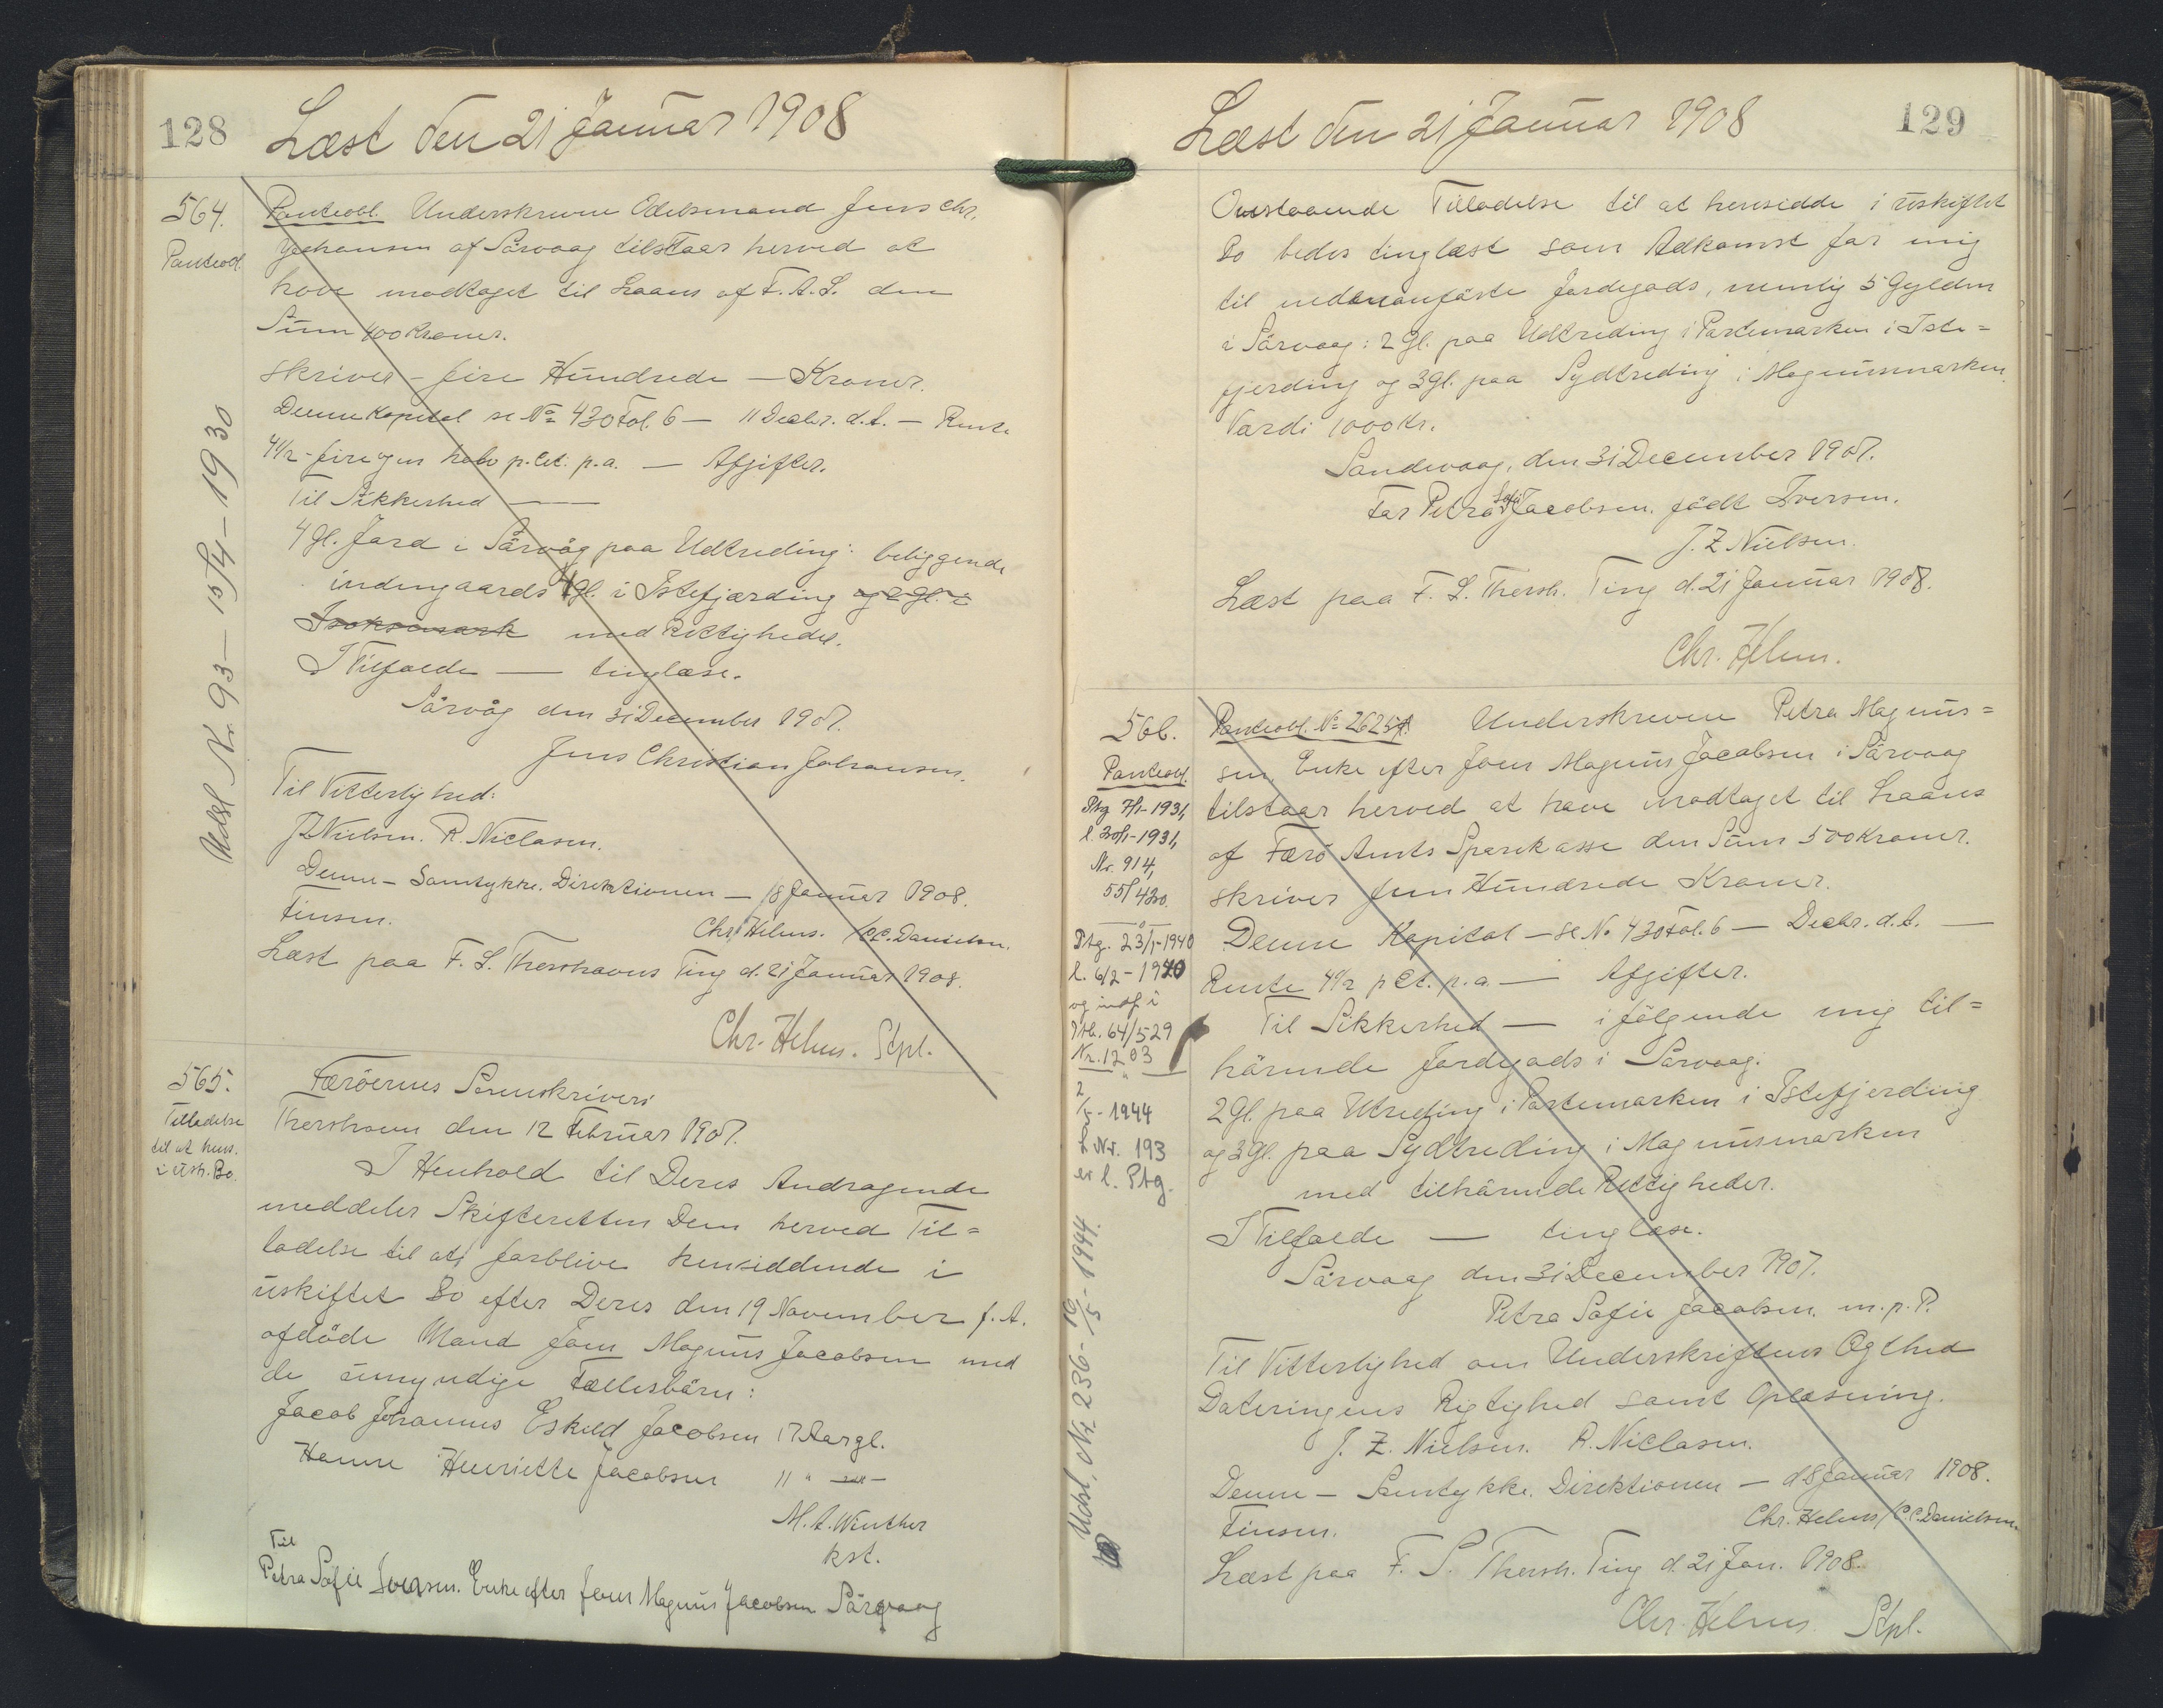 128
Læst den 21 Januar 1908
564.
Panteobl.
Udsl Nr. 93 – 15/4 – 1930
Panteobl. Underskrevne Odelsmand Jens Chr.
Johansen af Sörvaag tilstaar herved at
have modtaget til Laans af F. A. S. den
Sum 400 Kroner.
skriver – fire Hundrede — Kroner.
Denne Kapital se № 430 Fol. 6 — 11 Decbr. d. A. — Rente
4 1/2 – fire og en halv p. Ct. p. a. — Afgifter.
Til Sikkerhed ——
4 Gl. Jord i Sörvåg paa Udtreding: beliggende
indengaards 4 Gl. i Istefjærding og 2 Gl. i
med Rettigheder.
I Tilfælde — tinglæse.
Sörvåg den 31 December 1907.
Jens Christian Johansen.
Til Vitterlighed:
J Z Nielsen. R. Niclasen.
Denne – Samtykke. Direktionen — 18 Januar 1908.
Finsen. Chr. Helms. / C. C. Danielsen.
Læst paa F. S. Thorshavns Ting d. 21 Januar 1908.
Chr. Helms. Stpl.
565.
Tilladelse
til at hens.
i usk. Bo.
Færöernes Sorenskriveri
Thorshavn den 12 Februar 1907.
I Henhold til Deres Andragende
meddeler Skifteretten Dem herved Til=
ladelse til at forblive hensiddende i
uskiftet Bo efter Deres den 19 November f. A.
afdöde Mand Joen Magnus Jacobsen med
de umyndige Fællesbörn:
Jacob Johannes Eskild Jacobsen 17 Aar gl.
Hanne Henriette Jacobsen 11 " — " —
M. A. Winther
kst.
Til
Petra Sofie Iversen. Enke efter Joen Magnus Jacobsen Sörvaag
129
Læst den 21 Januar 1908
Ovenstaaende Tilladelse til at hensidde i uskiftet
Bo bedes tinglæst som Adkomst for mig
til nedenanförte Jordegods, nemlig 5 Gylden
i Sörvaag: 2 Gl. paa Udtreding i Partemarken i Iste=
fjerding og 3 Gl. paa Sydtreding i Magnusmarken.
Værdi 1000 Kr.
Sandevaag, den 31 December 1907.
For Petra Sofie Jacobsen. född Iversen.
J. Z Nielsen.
Læst paa F. S. Thorsh. Ting d. 21 Januar 1908.
Chr. Helms.
566.
Panteobl.
Ptg 7/1-1931,
l. 20/1-1931,
Nr. 914,
55/430.
—o—
Ptg. 23/1-1940
l. 6/2-1940
og indf. i
Ptb. 64/529
Nr. 1203
2/5-1944
L Nr. 193
er l. Ptg.
Udsl. Nr. 236 - 10/5 - 1944.
Panteobl. № 2625 A. Underskrevne Petra Magnus=
sen, Enke efter Joen Magnus Jacobsen i Sörvaag
tilstaar herved at have modtaget til Laans
af Færö Amts Sparekasse den Sum 500 Kroner.
skriver fem Hundrede Kroner.
Denne Kapital — se № 430 Fol. 6 — Decbr. d. A. —
Rente 4 1/2 p Ct. p. a. — Afgifter.
Til Sikkerhed — i fölgende mig til=
hörende Jordegods i Sörvaag:
2 Gl. paa Utreding i Partemarken i Istefjerding
og 3 Gl. paa Sydtreding i Magnusmarken
med tilhörende Rettigheder.
I Tilfælde — tinglæse.
Sörvaag den 31 December 1907.
Petra Sofie Jacobsen. m. p. P.
Til Vitterlighed om Underskriftens Ægthed
Dateringens Rigtighed samt Oplæsning.
J. Z. Nielsen. R. Niclasen.
Denne — Samtykke. Direktionen — d 18 Januar 1908.
Finsen. Chr. Helms / C. C. Danielsen.
Læst paa F. S. Thorsh. Ting d. 21 Jan. 1908.
Chr. Helms Stpl.